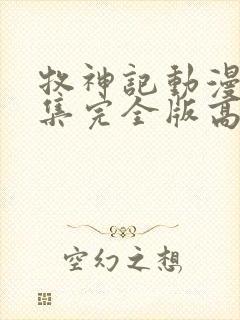 牧神記動漫
集完全版高
空幻之想